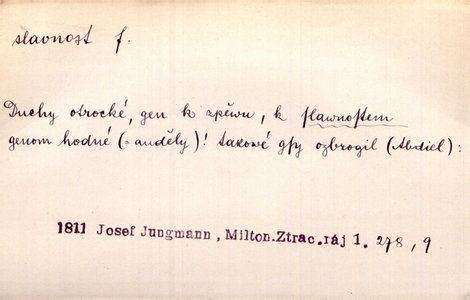 slavnost f.
Duchy otrocké, gen k zpěwu, k slawnostem
genom hodné (= anděly)! takowé gsy ozbrogil (Abdiel):
1811 Josef Jungmann, Milton.Ztrac.ráj 1. 278, 9.